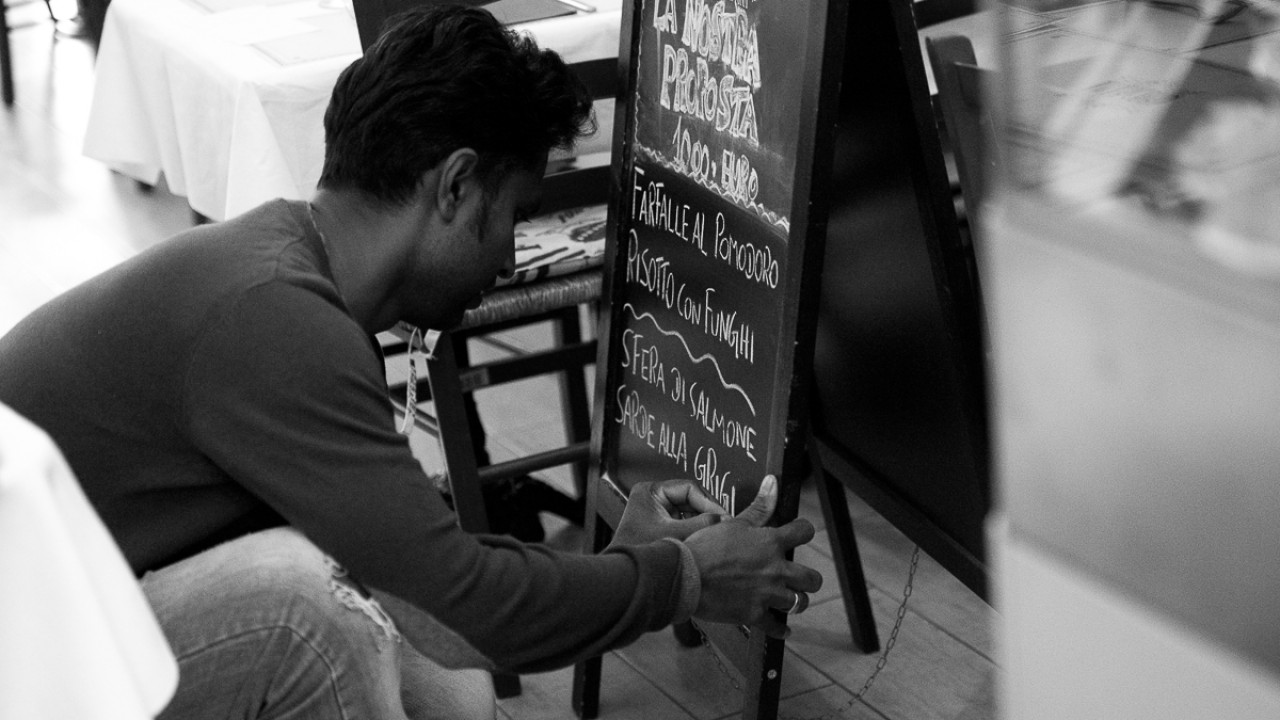 LA NOSTRA
PROPOSTA
10,00: EURO
FARFALLE AL POMODORO
RISOTTO CON FUNGHI
SFERA DI SALMONE
SARDE ALLA GRIGL